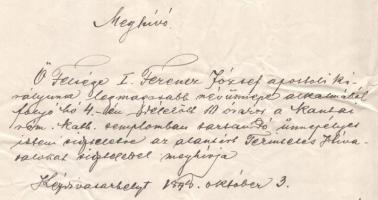 Meghívó.
Ő Felsége I. Ferencz József apostoli ki-
rályunk legmagasabb névünnepe alkalmából
folyó hó 4-én délelőtt 10 órakor a kantai
róm. kath. templomban tartandó ünnepélyes
isteni tiszteletre az alantirt Hiva-
talokat tisztelettel meghívja
Kézdivásárhelyt október 3.